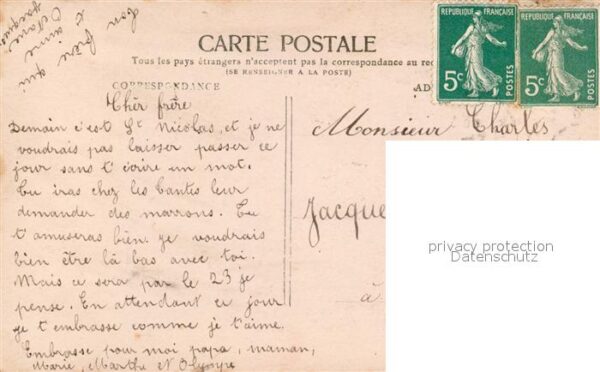 CARTE POSTALE
Tous les pays étrangers n'acceptent pas la correspondance au rec
(SE RENSEIGNER A LA POSTE)
CORRESPONDANCE
AD
REPUBLIQUE FRANÇAISE
5c
POSTES
REPUBLIQUE FRANÇAISE
5c
POSTES
Chèr frère
Demain c'est St Nicolas, et je ne
voudrais pas laisser passer ce
jour sans t'écrire un mot.
Tu iras chez les Tantes leur
demander des marrons. Tu
t'amuseras bien. je voudrais
bien être là bas avec toi.
Mais ce sera par le 23 je
pense. En attendant ce jour
je t'embrasse comme je t'aime.
Embrasse pour moi papa, maman,
Marie, Marthe et Olympe
ton
frère qui
t'aime
Jacques
Monsieur Charles
Jacque
à
privacy protection
Datenschutz